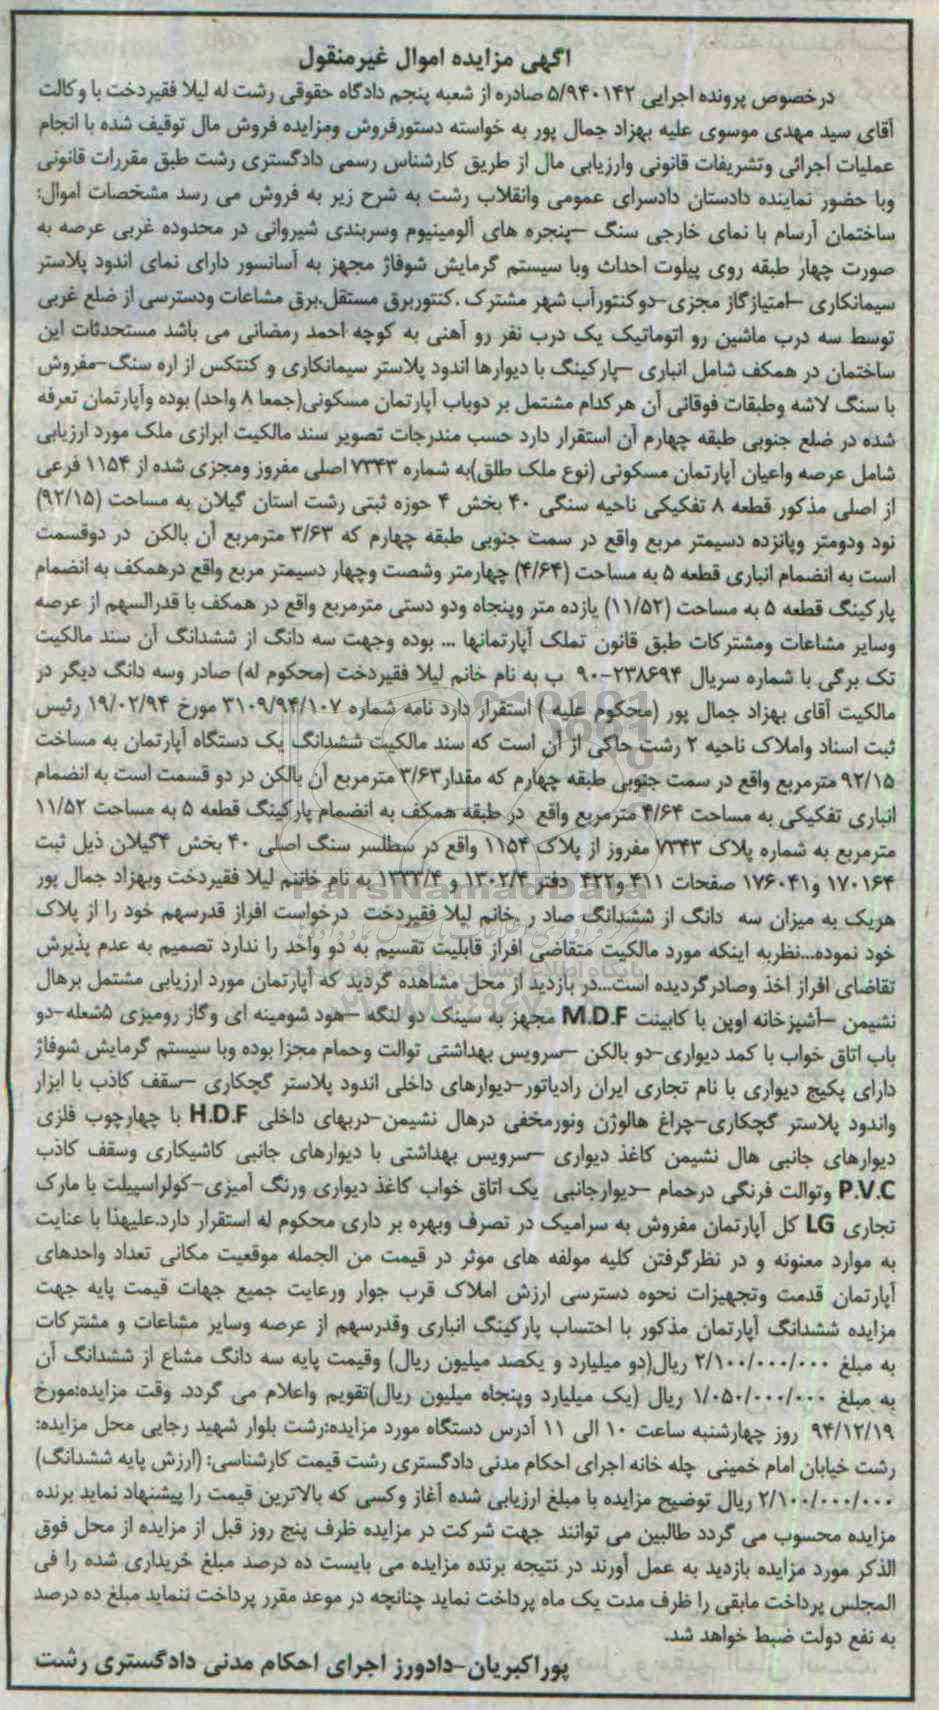 آگهی مزایده اموال غیرمنقول
درخصوص پرونده اجرایی ۵/۹۴۰۱۴۲ صادره از شعبه پنجم دادگاه حقوقی رشت له لیلا فقیردخت با وکالت
آقای سید مهدی موسوی علیه بهزاد جمال پور به خواسته دستورفروش ومزایده فروش مال توقیف شده با انجام
عملیات اجرائی وتشریفات قانونی وارزیابی مال از طریق کارشناس رسمی دادگستری رشت طبق مقررات قانونی
وبا حضور نماینده دادستان دادسرای عمومی وانقلاب رشت به شرح زیر به فروش می رسد مشخصات اموال:
ساختمان آرسام با نمای خارجی سنگ –پنجره های آلومینیوم وسربندی شیروانی در محدوده غربی عرصه به
صورت چهار طبقه روی پیلوت احداث وبا سیستم گرمایش شوفاژ مجهز به آسانسور دارای نمای اندود پلاستر
سیمانکاری –امتیازگاز مجزی–دوکنتورآب شهر مشترک .کنتوربرق مستقل.برق مشاعات ودسترسی از ضلع غربی
توسط سه درب ماشین رو اتوماتیک یک درب نفر رو آهنی به کوچه احمد رمضانی می باشد مستحدثات این
ساختمان در همکف شامل انباری –پارکینگ با دیوارها اندود پلاستر سیمانکاری و کنتکس از اره سنگ–مفروش
با سنگ لاشه وطبقات فوقانی آن هرکدام مشتمل بر دوباب آپارتمان مسکونی(جمعا ۸ واحد) بوده وآپارتمان تعرفه
شده در ضلع جنوبی طبقه چهارم آن استقرار دارد حسب مندرجات تصویر سند مالکیت ابرازی ملک مورد ارزیابی
شامل عرصه واعیان آپارتمان مسکونی (نوع ملک طلق)به شماره ۷۳۴۳ اصلی مفروز ومجزی شده از ۱۱۵۴ فرعی
از اصلی مذکور قطعه ۸ تفکیکی ناحیه سنگی ۴۰ بخش ۴ حوزه ثبتی رشت استان گیلان به مساحت (۹۲/۱۵)
نود ودومتر وپانزده دسیمتر مربع واقع در سمت جنوبی طبقه چهارم که ۳/۶۳ مترمربع آن بالکن در دوقسمت
است به انضمام انباری قطعه ۵ به مساحت (۴/۶۴) چهارمتر وشصت وچهار دسیمتر مربع واقع درهمکف به انضمام
پارکینگ قطعه ۵ به مساحت (۱۱/۵۲) یازده متر وپنجاه ودو دستی مترمربع واقع در همکف با قدرالسهم از عرصه
وسایر مشاعات ومشترکات طبق قانون تملک آپارتمانها ... بوده وجهت سه دانگ از ششدانگ آن سند مالکیت
تک برگی با شماره سریال ۲۳۸۶۹۴–۹۰ ب به نام خانم لیلا فقیردخت (محکوم له) صادر وسه دانگ دیگر در
مالکیت آقای بهزاد جمال پور (محکوم علیه ) استقرار دارد نامه شماره ۳۱۰۹/۹۴/۱۰۷ مورخ ۱۹/۰۲/۹۴ رئیس
ثبت اسناد واملاک ناحیه ۲ رشت حاکی از آن است که سند مالکیت ششدانگ یک دستگاه آپارتمان به مساحت
۹۲/۱۵ مترمربع واقع در سمت جنوبی طبقه چهارم که مقدار۳/۶۳ مترمربع آن بالکن در دو قسمت است به انضمام
انباری تفکیکی به مساحت ۴/۶۴ مترمربع واقع در طبقه همکف به انضمام پارکینگ قطعه ۵ به مساحت ۱۱/۵۲
مترمربع به شماره پلاک ۷۳۴۳ مفروز از پلاک ۱۱۵۴ واقع در سطلسر سنگ اصلی ۴۰ بخش ۴گیلان ذیل ثبت
۱۷۰۱۶۴ و۱۷۶۰۴۱ صفحات ۴۱۱ و۴۲۲ دفتر ۱۳۰۲/۴ و ۱۳۳۲/۴ به نام خانم لیلا فقیردخت وبهزاد جمال پور
هریک به میزان سه دانگ از ششدانگ صاد ر .خانم لیلا فقیردخت درخواست افراز قدرسهم خود را از پلاک
خود نموده...نظربه اینکه مورد مالکیت متقاضی افراز قابلیت تقسیم به دو واحد را ندارد تصمیم به عدم پذیرش
تقاضای افراز اخذ وصادرگردیده است...در بازدید از محل مشاهده گردید که آپارتمان مورد ارزیابی مشتمل برهال
نشیمن –آشپزخانه اوپن با کابینت M.D.F مجهز به سینک دو لنگه –هود شومینه ای وگاز رومیزی ۵شعله–دو
باب اتاق خواب با کمد دیواری–دو بالکن –سرویس بهداشتی توالت وحمام مجزا بوده وبا سیستم گرمایش شوفاژ
دارای پکیج دیواری با نام تجاری ایران رادیاتور–دیوارهای داخلی اندود پلاستر گچکاری –سقف کاذب با ابزار
واندود پلاستر گچکاری–چراغ هالوژن ونورمخفی درهال نشیمن–دربهای داخلی H.D.F با چهارچوب فلزی
دیوارهای جانبی هال نشیمن کاغذ دیواری –سرویس بهداشتی با دیوارهای جانبی کاشیکاری وسقف کاذب
P.V.C وتوالت فرنگی درحمام –دیوارجانبی یک اتاق خواب کاغذ دیواری ورنگ آمیزی–کولراسپیلت با مارک
تجاری LG کل آپارتمان مفروش به سرامیک در تصرف وبهره بر داری محکوم له استقرار دارد.علیهذا با عنایت
به موارد معنونه و در نظرگرفتن کلیه مولفه های موثر در قیمت من الجمله موقعیت مکانی تعداد واحدهای
آپارتمان قدمت وتجهیزات نحوه دسترسی ارزش املاک قرب جوار ورعایت جمیع جهات قیمت پایه جهت
مزایده ششدانگ آپارتمان مذکور با احتساب پارکینگ انباری وقدرسهم از عرصه وسایر مشاعات و مشترکات
به مبلغ ۲/۱۰۰/۰۰۰/۰۰۰ ریال(دو میلیارد و یکصد میلیون ریال) وقیمت پایه سه دانگ مشاع از ششدانگ آن
به مبلغ ۱/۰۵۰/۰۰۰/۰۰۰ ریال (یک میلیارد وپنجاه میلیون ریال)تقویم واعلام می گردد. وقت مزایده:مورخ
۹۴/۱۲/۱۹ روز چهارشنبه ساعت ۱۰ الی ۱۱ آدرس دستگاه مورد مزایده:رشت بلوار شهید رجایی محل مزایده:
رشت خیابان امام خمینی چله خانه اجرای احکام مدنی دادگستری رشت قیمت کارشناسی: (ارزش پایه ششدانگ)
۲/۱۰۰/۰۰۰/۰۰۰ ریال توضیح مزایده با مبلغ ارزیابی شده آغاز وکسی که بالاترین قیمت را پیشنهاد نماید برنده
مزایده محسوب می گردد طالبین می توانند جهت شرکت در مزایده ظرف پنج روز قبل از مزایده از محل فوق
الذکر مورد مزایده بازدید به عمل آورند در نتیجه برنده مزایده می بایست ده درصد مبلغ خریداری شده را فی
المجلس پرداخت مابقی را ظرف مدت یک ماه پرداخت نماید چنانچه در موعد مقرر پرداخت ننماید مبلغ ده درصد
به نفع دولت ضبط خواهد شد.
پوراکبریان–دادورز اجرای احکام مدنی دادگستری رشت